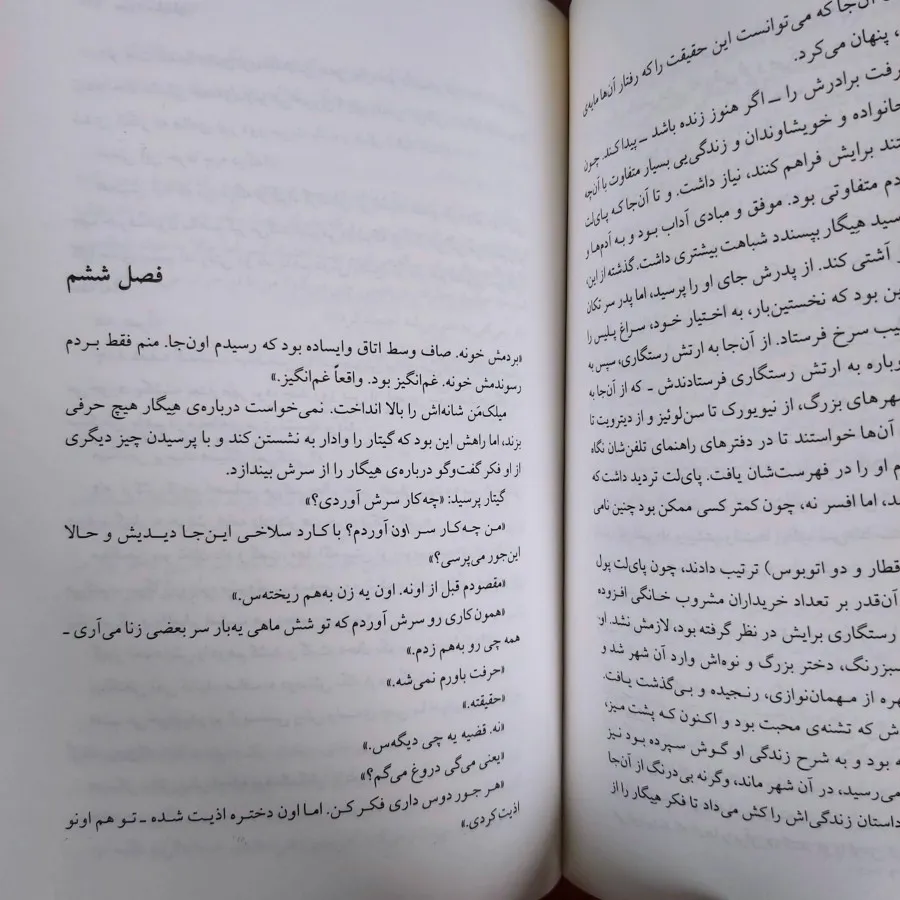 آن‌جا که می‌توانست این حقیقت را که رفتار آن‌ها مایه‌ی
، پنهان می‌کرد.
رفت برادرش را ــ اگر هنوز زنده باشد ــ پیدا کند. چون
خانواده و خویشاوندان و زندگی‌یی بسیار متفاوت با آن‌چه
برایش فراهم کنند، نیاز داشت. و تا آن‌جا که پای‌لت
متفاوتی بود. موفق و مبادی آداب بود و به آدم‌ها و
هیگار بپسندد شباهت بیشتری داشت. گذشته از این،
آشتی کند. از پدرش جای او را پرسید، اما پدر سر تکان
بود که نخستین‌بار، به اختیار خود، سراغ پلیس را
سرخ فرستاد. از آن‌جا به ارتش رستگاری، سپس به
به ارتش رستگاری فرستادندش ـ که از آن‌جا به
شهرهای بزرگ، از نیویورک تا سن‌لوئیز و از دیترویت تا
آن‌ها خواستند تا در دفترهای راهنمای تلفن‌شان نگاه
او را در فهرست‌شان یافت. پای‌لت تردید داشت که
، اما افسر نه، چون کمتر کسی ممکن بود چنین نامی
قطار و دو اتوبوس) ترتیب دادند، چون پای‌لت پول
آن‌قدر بر تعداد خریداران مشروب خانگی افزوده
رستگاری برایش در نظر گرفته بود، لازمش نشد. او،
سبزرنگ، دختر بزرگ و نوه‌اش وارد آن شهر شد و
از مهمان‌نوازی، رنجیده و بی‌گذشت یافت.
که تشنه‌ی محبت بود و اکنون که پشت میز،
بود و به شرح زندگی او گوش سپرده بود نیز
می‌رسید، در آن شهر ماند، وگرنه بی‌درنگ از آن‌جا
داستان زندگی‌اش را کش می‌داد تا فکر هیگار را از
فصل ششم
«بردمش خونه. صاف وسط اتاق وایساده بود که رسیدم اون‌جا. منم فقط بردم
رسوندمش خونه. غم‌انگیز بود. واقعاً غم‌انگیز.»
میلک‌مَن شانه‌اش را بالا انداخت. نمی‌خواست درباره‌ی هیگار هیچ حرفی
بزند، اما راهش این بود که گیتار را وادار به نشستن کند و با پرسیدن چیز دیگری
از او فکر گفت‌وگو درباره‌ی هیگار را از سرش بیندازد.
گیتار پرسید: «چه‌کار سرش آوردی؟»
«من چه‌کار سر اون آوردم؟ با کارد سلاخی این‌جا دیدیش و حالا
این‌جور می‌پرسی؟»
«مقصودم قبل از اونه. اون یه زن به‌هم ریخته‌س.»
«همون‌کاری رو سرش آوردم که تو شش ماهی یه‌بار سر بعضی زنا می‌آری ـ
همه چی رو به‌هم زدم.»
«حرفت باورم نمی‌شه.»
«حقیقته.»
«نه. قضیه یه چی دیگه‌س.»
«یعنی می‌گی دروغ می‌گم؟»
«هر جور دوس داری فکر کن. اما اون دختره اذیت شده ـ تو هم اونو
اذیت کردی.»